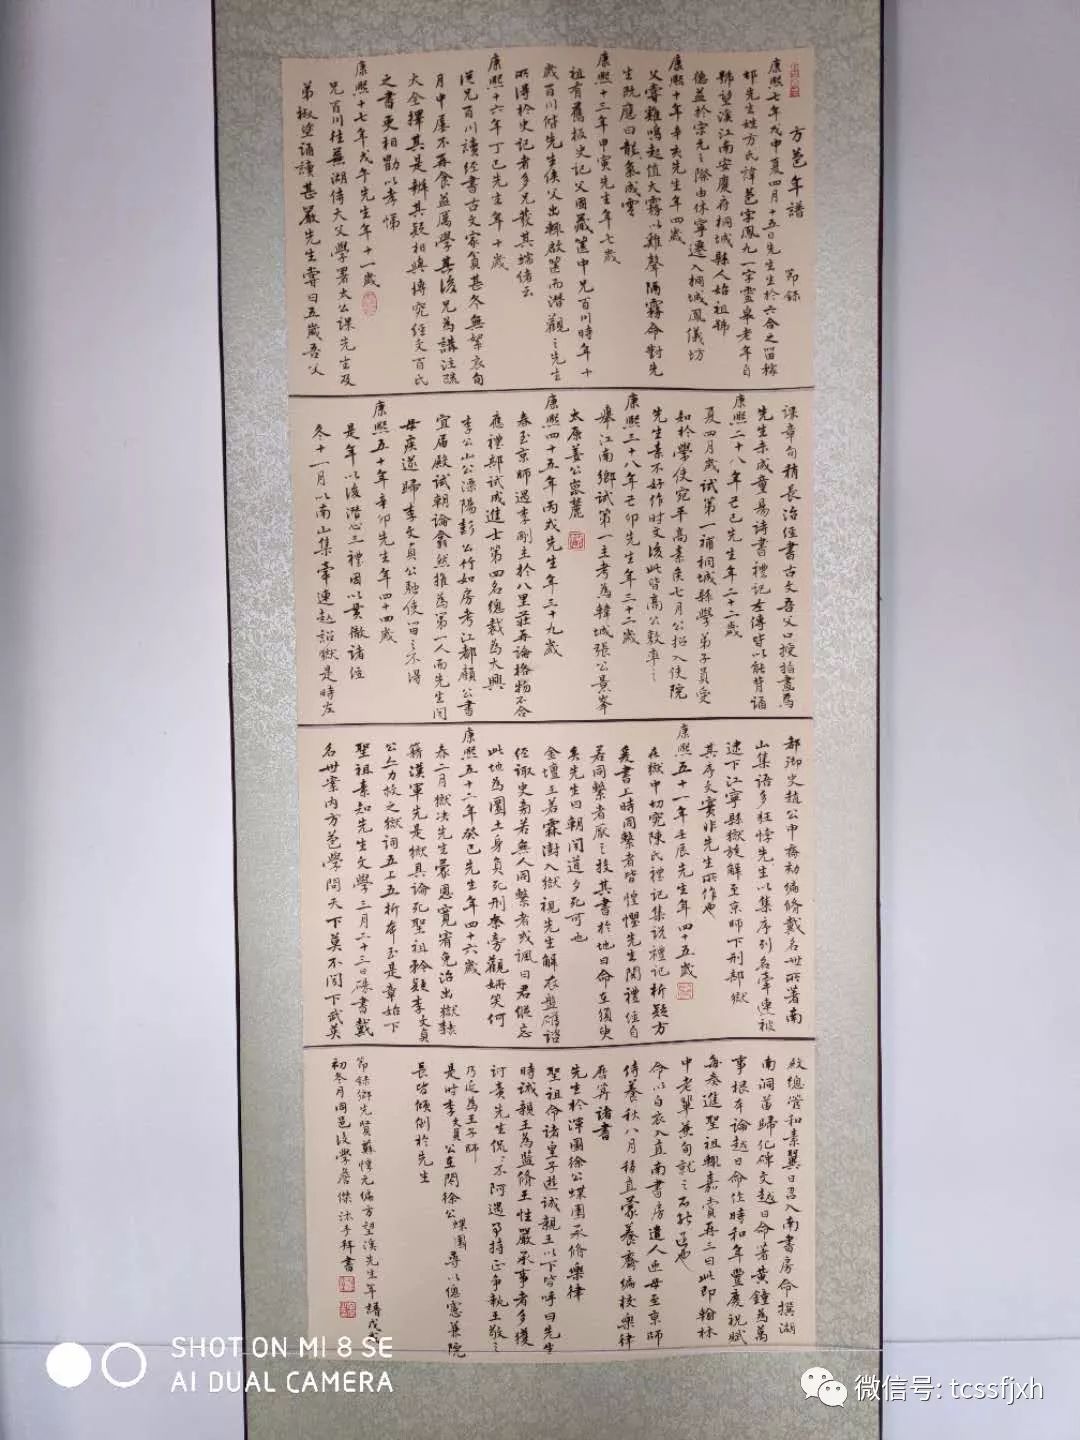 方苞年譜 節錄
康熙七年戊申夏四月十五日先生生於六合之留稼
邨先生姓方氏諱苞字鳳九一字靈皋老年自
號望溪江南安慶府桐城縣人始祖號
德益於宋元之際由休寧遷入桐城鳳儀坊
康熙十年辛亥先生年四歲
父嘗雞鳴起值大霧以雞聲隔霧命對先
生既應曰龍氣成雲
康熙十三年甲寅先生年七歲
祖有舊板史記父固藏篋中兄百川時年十
歲百川偕先生俟父出輒啟篋而潛觀之先生
所得於史記者多兄發其端緒云
康熙十六年丁巳先生年十歲
從兄百川讀經書古文家貧甚冬無絮衣旬
月中屢不再食益厲學其後兄為講注疏
大全擇其是辨其疑相與博究經文百氏
之書更相勖以孝悌
康熙十七年戊午先生年十一歲
兄百川往蕪湖侍大父學署太公課先生及
弟椒塗誦讀甚嚴先生嘗曰五歲吾父
課章句稍長治經書古文吾父口授指畫焉
先生未成童易詩書禮記左傳皆以能背誦
康熙二十八年己巳先生年二十二歲
夏四月歲試第一補桐城縣學弟子員受
知於學使宛平高素侯七月公招入使院
先生素不好作時文後此皆高公敦率之
康熙三十八年己卯先生年三十二歲
舉江南鄉試第一主考為韓城張公景峯
太康姜公崑麓
康熙四十五年丙戌先生年三十九歲
春至京師過李剛主於八里莊再論格物不合
應禮部試成進士第四名總裁為大興
李公山公溧陽彭公竹如房考江都顧公書
宣屆殿試朝論翕然推為第一人而先生聞
母疾遂歸李文貞公馳使留之不得
康熙五十年辛卯先生年四十四歲
是年以後潛心三禮因以貫徹諸經
冬十一月以南山集牽連赴詔獄是時左
都御史趙公申喬劾編修戴名世所著南
山集語多狂悖先生以集序列名牽連被
逮下江寧縣獄旋解至京師下刑部獄
其序文實非先生所作也
康熙五十一年壬辰先生年四十五歲
在獄中切究陳氏禮記集說禮記析疑方
爰書上時同繫者皆惶懼先生閱禮經自
若同繫者厭之投其書於地曰命在須臾
矣先生曰朝聞道夕死可也
金壇王若霖澍入獄視先生解衣盤礴諮
經諏史旁若無人同繫者或諷曰君縱忘
此地為圜土身負死刑奈旁觀姍笑何
康熙五十二年癸巳先生年四十六歲
春二月獄決先生蒙恩寬宥免治出獄隸
籍漢軍先是獄具論死聖祖矜疑李文貞
公亦力救之獄詞五上五折本至是章始下
聖祖素知先生文學三月二十三日硃書戴
名世案內方苞學問天下莫不聞下武英
殿總管和素翼日召入南書房命撰湖
南洞苗歸化碑文越日命著黃鍾為萬
事根本論越日命作時和年豐慶祝賦
每奏進聖祖輒嘉賞再三曰此即翰林
中老輩兼旬就之不能過也
命以白衣入直南書房遣人迎母至京師
侍養秋八月移直蒙養齋編校樂律
曆筭諸書
先生於渾園徐公蝶園承修樂律
聖祖命諸皇子遊誠親王以下皆呼曰先生
時誠親王為監修王性嚴承事者多獲
訶責先生侃侃不阿遇爭持正爭執王敬之
乃延為王子師
是時李文貞公在閣徐公蝶園尋以總憲兼院
長皆傾倒於先生
節錄鄉先賢蘇惇元編方望溪先生年譜戊戌
初冬月同邑後學詹傑沐手拜書
SHOT ON MI 8 SE
AI DUAL CAMERA
微信号: tcssfjxh